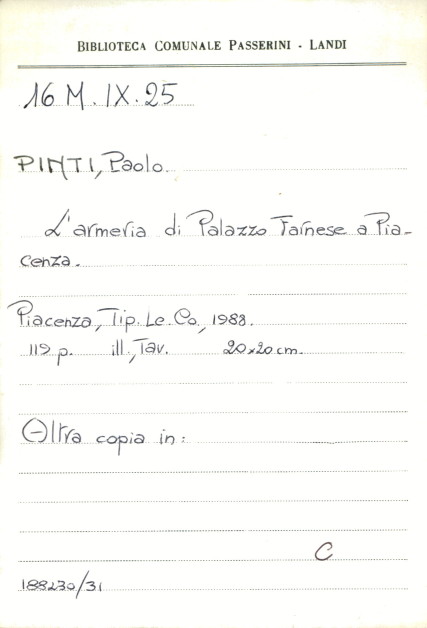 BIBLIOTECA COMUNALE PASSERINI - LANDI
16 M. IX. 25
PINTI, Paolo.
L'armeria di Palazzo Farnese a Pia-
cenza.
Piacenza, Tip. Le. Co., 1988.
119 p. ill., Tav. 20x20 cm.
Altra copia in:
C
188230/31